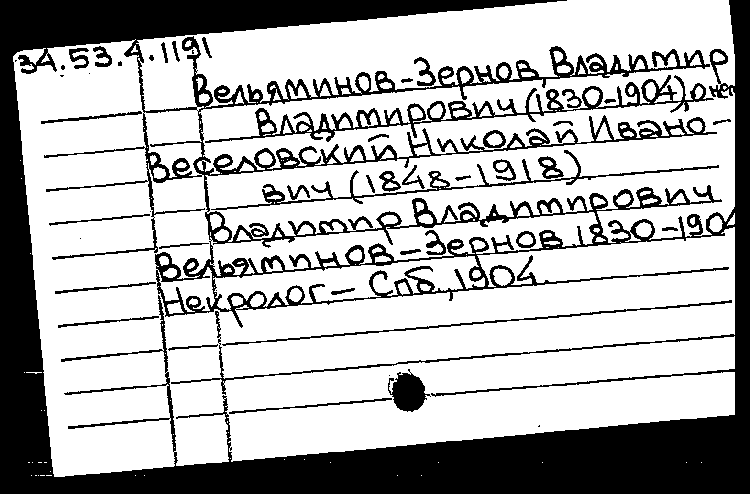 34.53.4.1191
Вельяминов-Зернов, Владимир
Владимирович (1830-1904), о нем
Веселовский, Николай Ивано-
вич (1848-1918).
Владимир Владимирович
Вельяминов-Зернов 1830-1904
Некролог. - Спб., 1904.